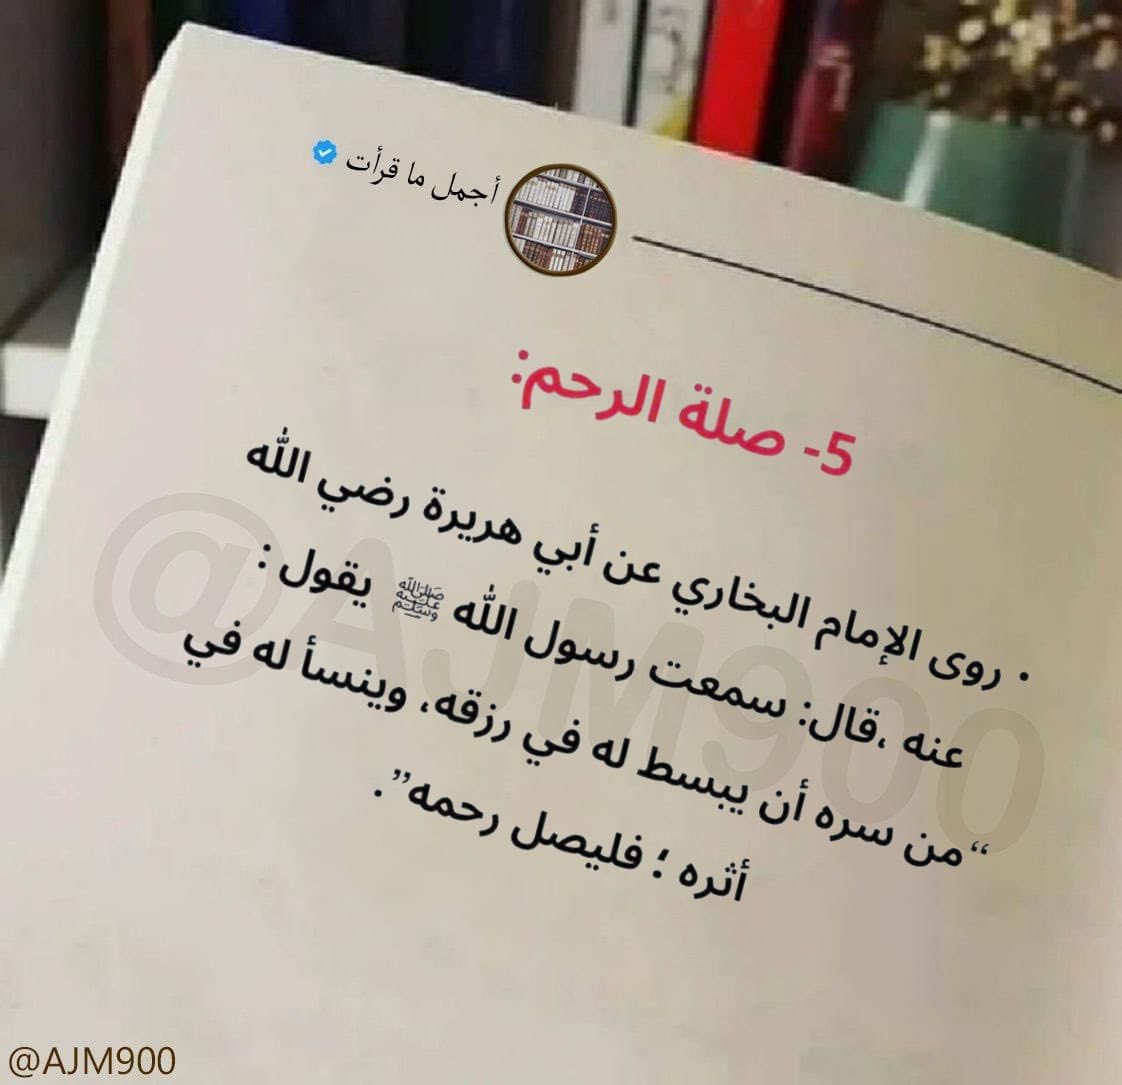 أجمل ما قرأت
5- صلة الرحم:
• روى الإمام البخاري عن أبي هريرة رضي الله
عنه ،قال: سمعت رسول الله ﷺ يقول :
“من سره أن يبسط له في رزقه، وينسأ له في
أثره ؛ فليصل رحمه”.
@AJM900
@AJM900